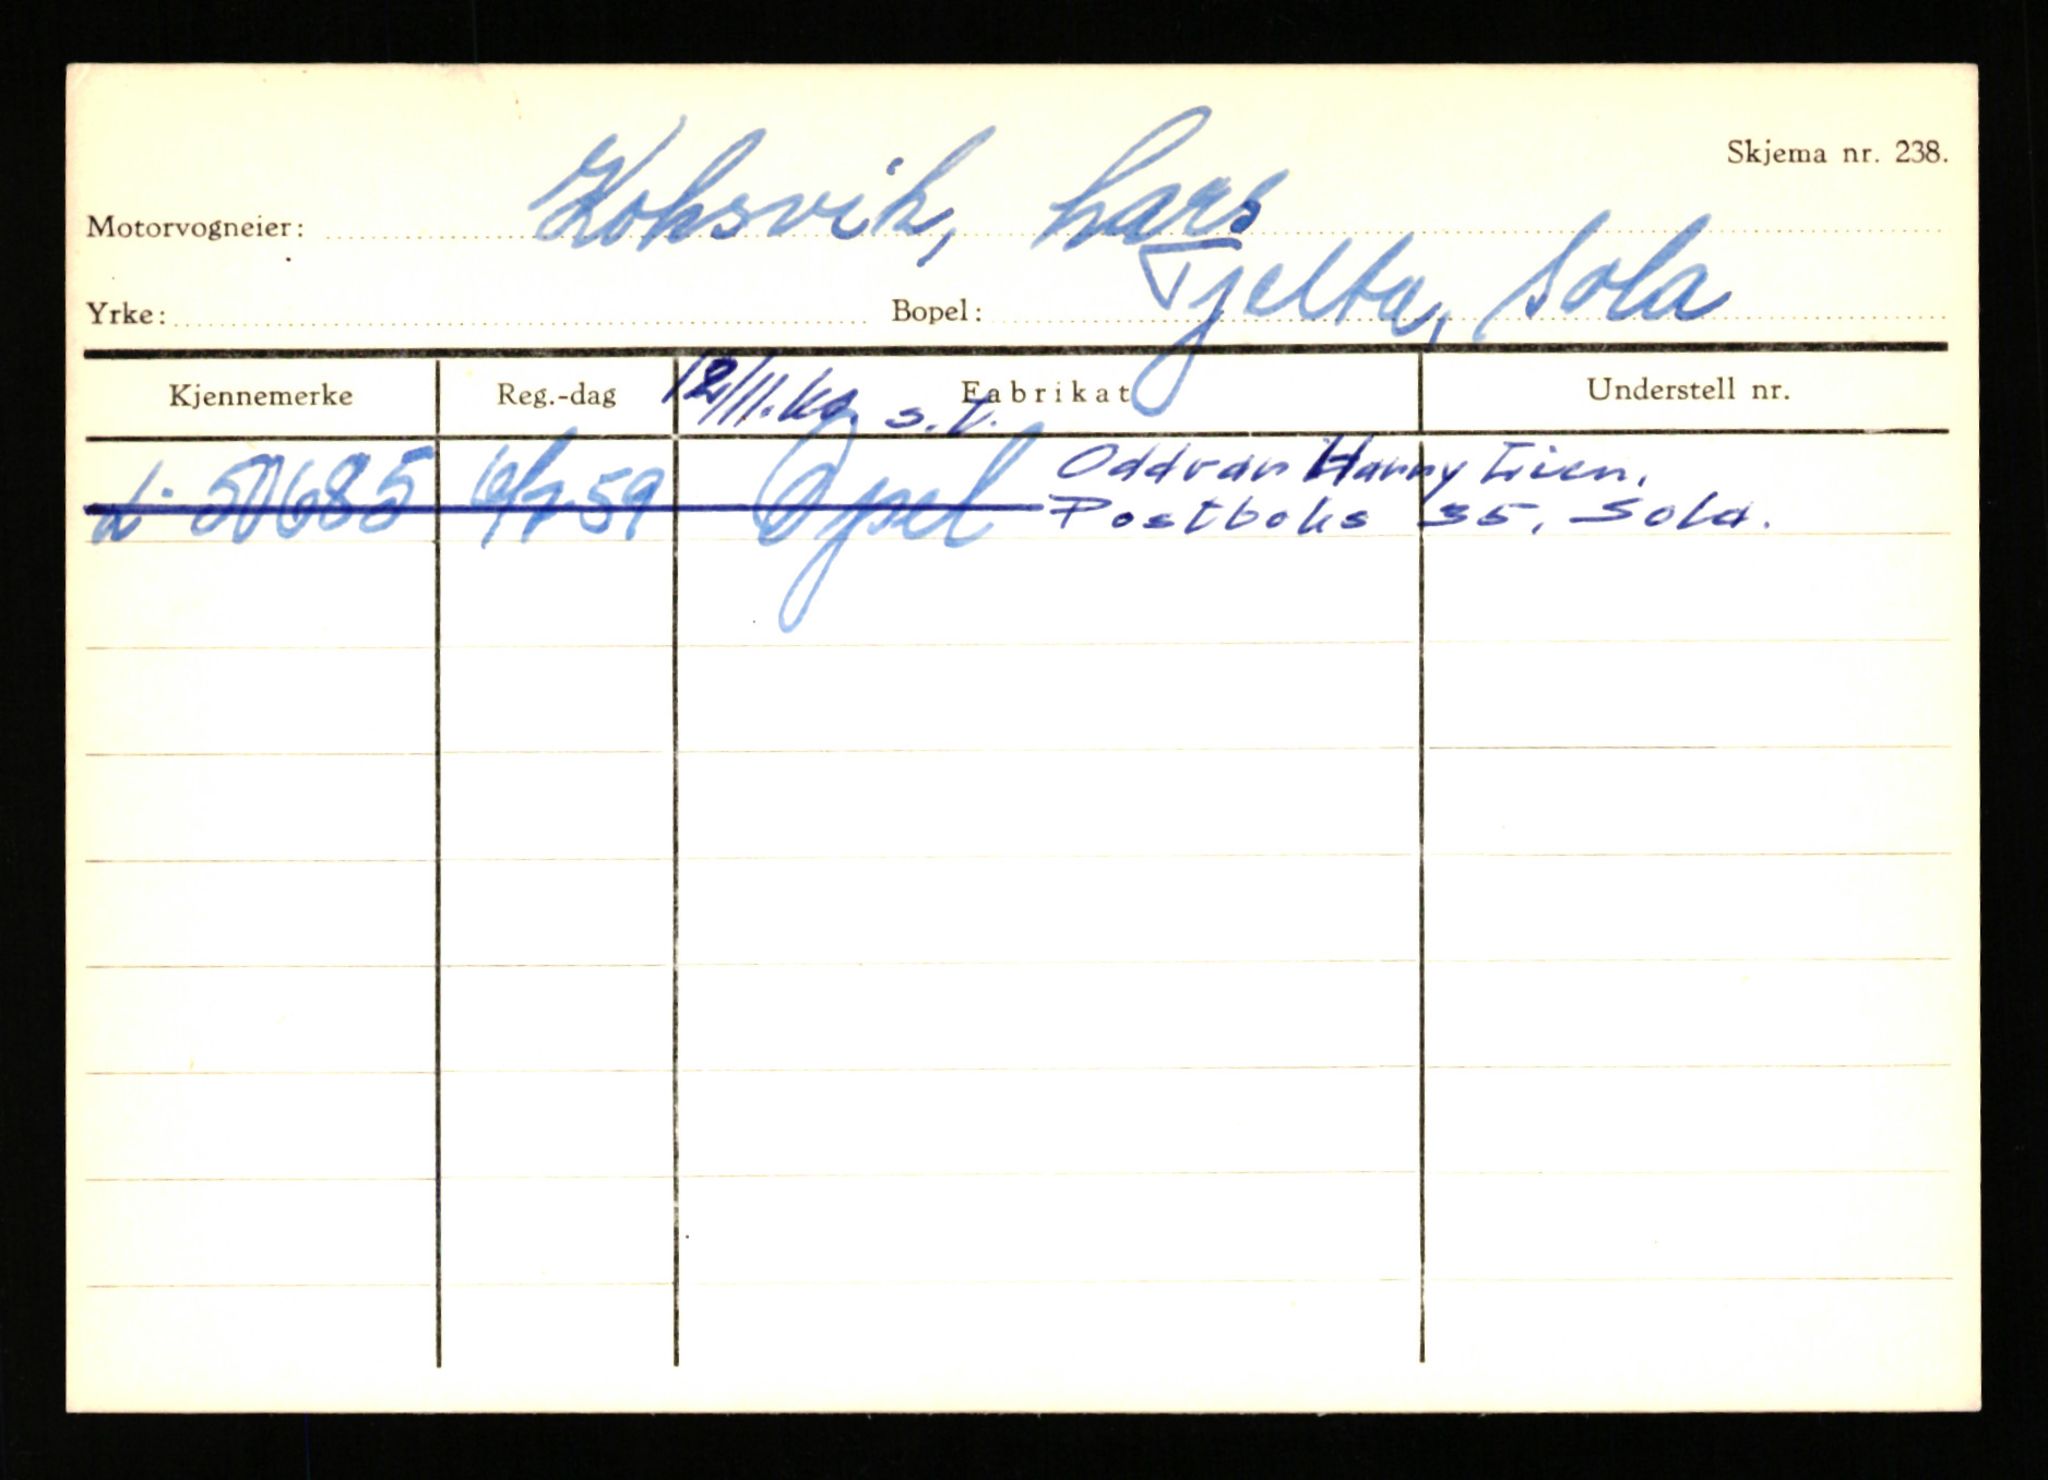 Skjema nr. 238.
Motorvogneier: Koksvik, Lars
Yrke: Bopel: Tjelta, Sola
Kjennemerke Reg.-dag Fabrikat Understell nr.
12/11. s.
L. 50685 59 Opel Oddvar Hanny Lien,
Postboks 35, Sola.